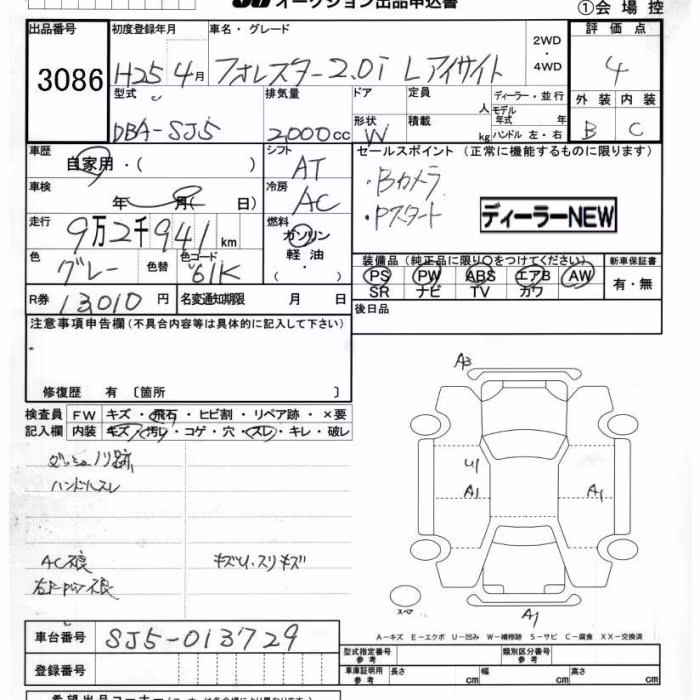 オークション出品申込書
①会場控
出品番号 初度登録年月 車名・グレード 評価点
3086 H25 4月 フォレスター2.0i Lアイサイト 2WD・4WD 4
型式 排気量 ドア 定員 ディーラー・並行 外装 内装
人 モデル年式 年
DBA-SJ5 2000cc 形状 W 積載 kg ハンドル 左・右 B C
車歴 シフト セールスポイント (正常に機能するものに限ります)
自家用・( ) AT
・Bカメラ
車検 冷房
年 月( 日) AC ・Pスタート ディーラーNEW
走行 燃料
9万2千941km ガソリン・軽油・( )
色 色替 色コード 装備品 (純正品に限り○をつけてください) 新車保証書
グレー 61K PS PW ABS エアB AW 有・無
SR ナビ TV カワ
R券 13010円 名変通知期限 月 日
後日品
注意事項申告欄(不具合内容等は具体的に記入して下さい)
修復歴 有 〔箇所 〕
検査員 FW キズ・飛石・ヒビ割・リペア跡・×要
記入欄 内装 キズ・汚レ・コゲ・穴・スレ・キレ・破レ
ダッシュノリ跡
ハンドルスレ
AC不良 キズU.スリキズ
A3
U1
A1 A1
スペア
A1
A-キズ E-エクボ U-凹み W-補修跡 S-サビ C-腐食 XX-交換済
車台番号 SJ5-013729
登録番号
型式指定番号 参考 類別区分番号 参考
車庫証明用 参考 長さ cm 幅 cm 高さ cm